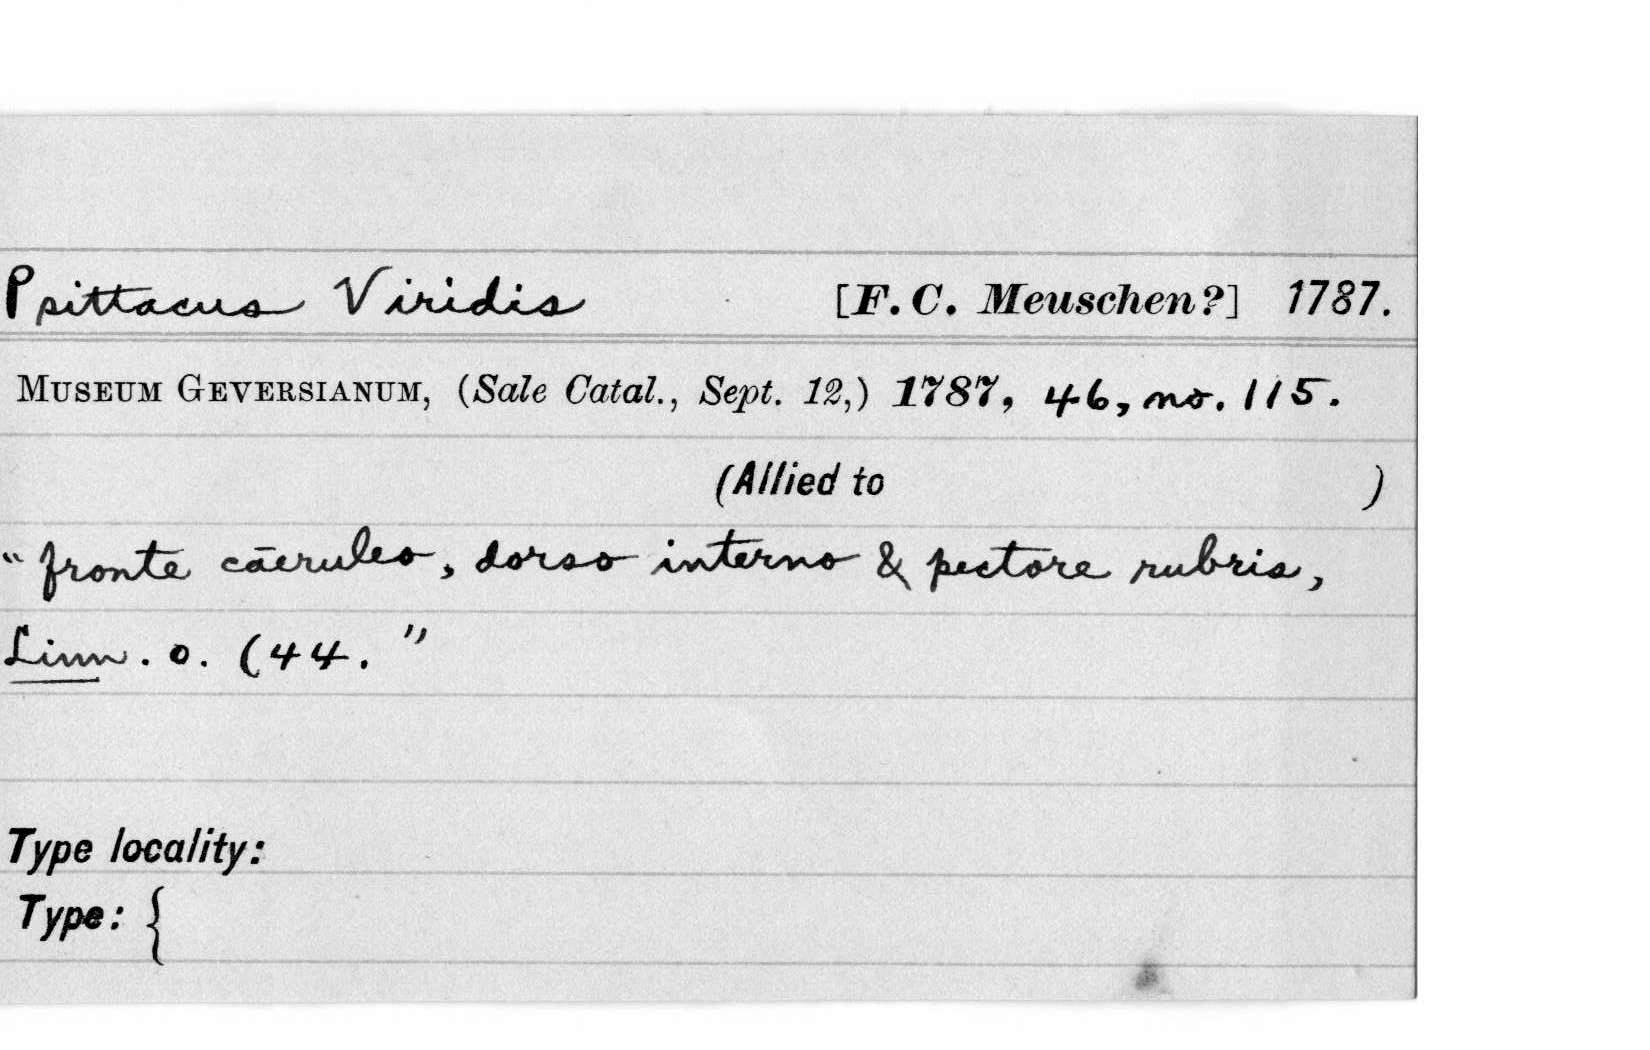 Psittacus Viridis [F. C. Meuschen?] 1787.
MUSEUM GEVERSIANUM, (Sale Catal., Sept. 12,) 1787, 46, no. 115.
(Allied to )
"fronte cāeruleo, dorso interno & pectore rubris,
Linn. o. (44."
Type locality:
Type: {